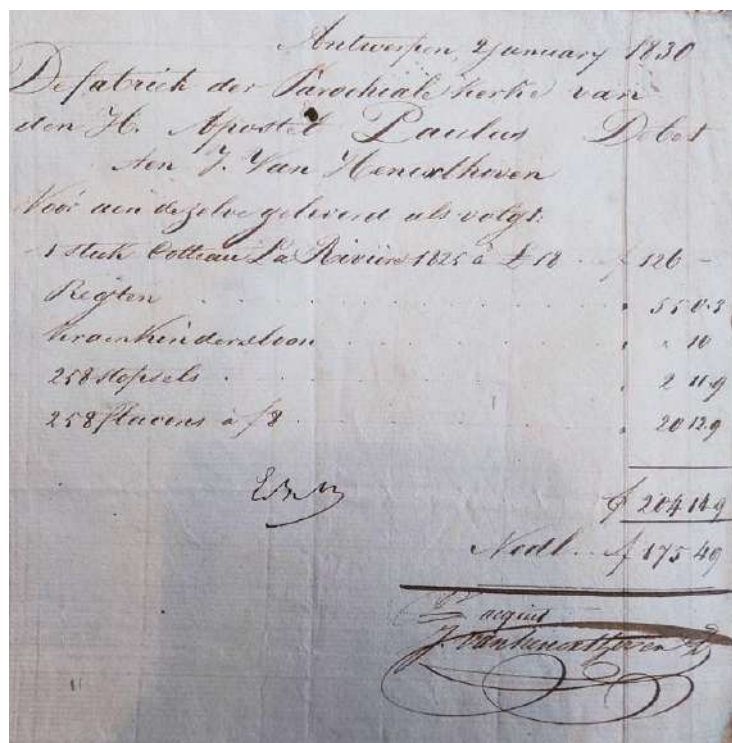 Antwerpen, 2 January 1830
De fabriek der Parochiale kerke van
den H. Apostel Paulus Debet
Aen J. Van Henexthoven
Voor aen dezelve geleverd als volgt:
1 stuk Cotteau La Rivière 1825 à £ 18 .. f 126 -
Regten . . . . . . . . . . " 55 0.3
Kraenkindersloon . . . . . . " " 10
258 stopsels . . . . . . . . " 2 11.9
258 flacons à f 8 . . . . . . " 20 12.9
f 204 14.9
Nedl. .. f 175 49
acquit
J. Van Henexthoven